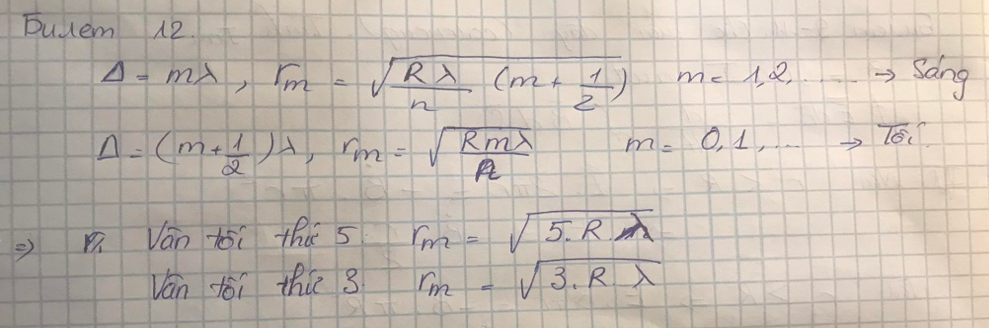 Билет 12.
Δ = mλ, rm = √(Rλ/n (m + 1/2)) m = 1,2, ... → Sáng
Δ = (m + 1/2)λ, rm = √(Rmλ/n) m = 0,1, ... → Tối
⇒ Vân tối thứ 5. rm = √(5.R λ)
Vân tối thứ 3. rm = √(3.R λ)